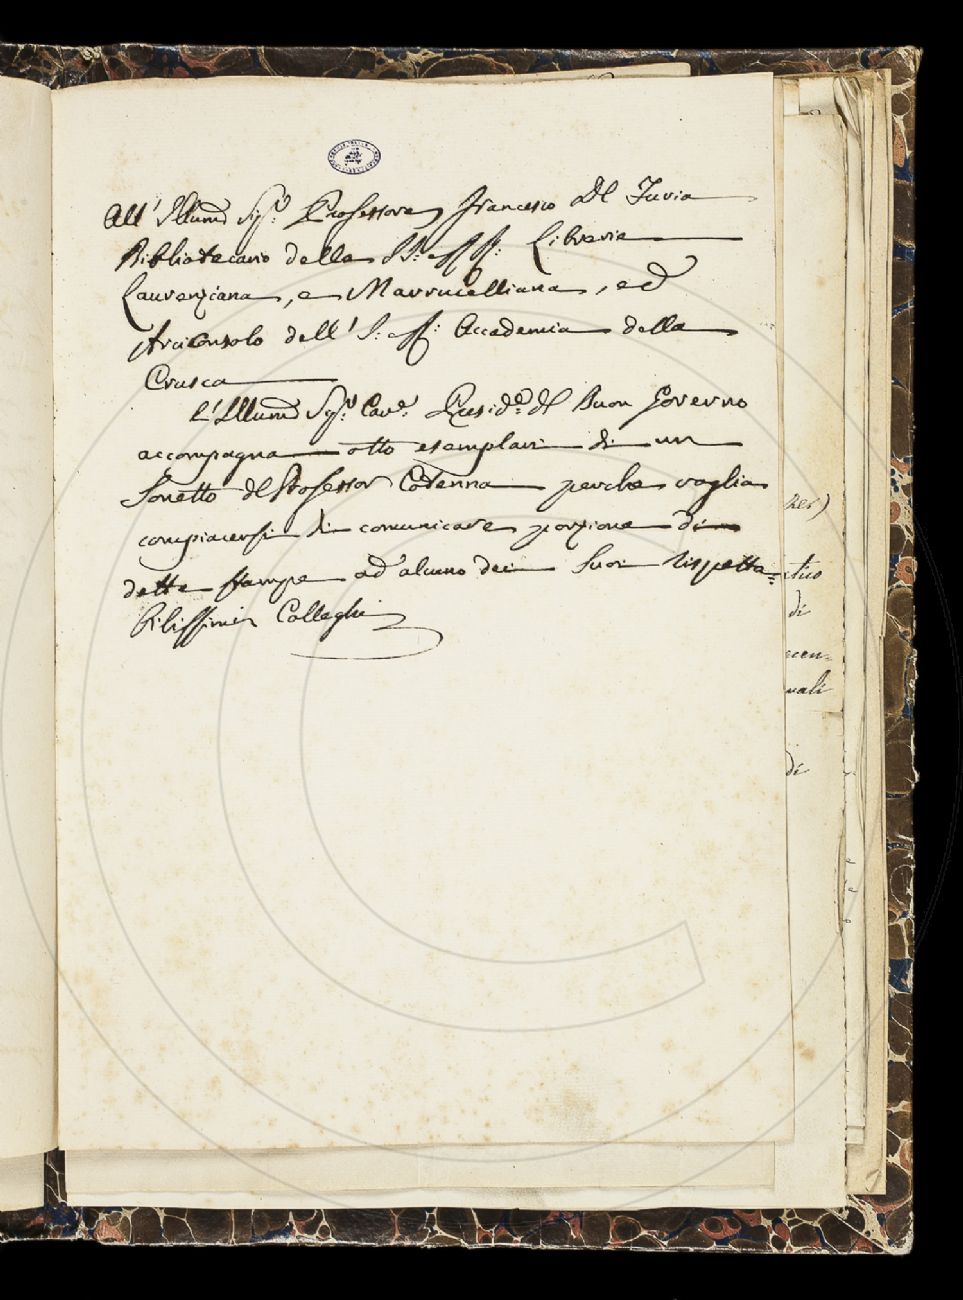 All' Illumo Sigr: Professore Francesco Del Furia
Bibliotecario della I: e R: Libreria
Laurenziana, e Marrucelliana, ed
Arciconsolo dell' I: e R: Accademia della
Crusca
L'Illumo Sigr: Cave: Preside: del Buon Governo
accompagna otto esemplari di un
Sonetto del Professor Catenna perche voglia
compiacersi di comunicare porzione di
dette stampe ad' alcuno dei Suoi rispetta=
bilissimi Colleghi